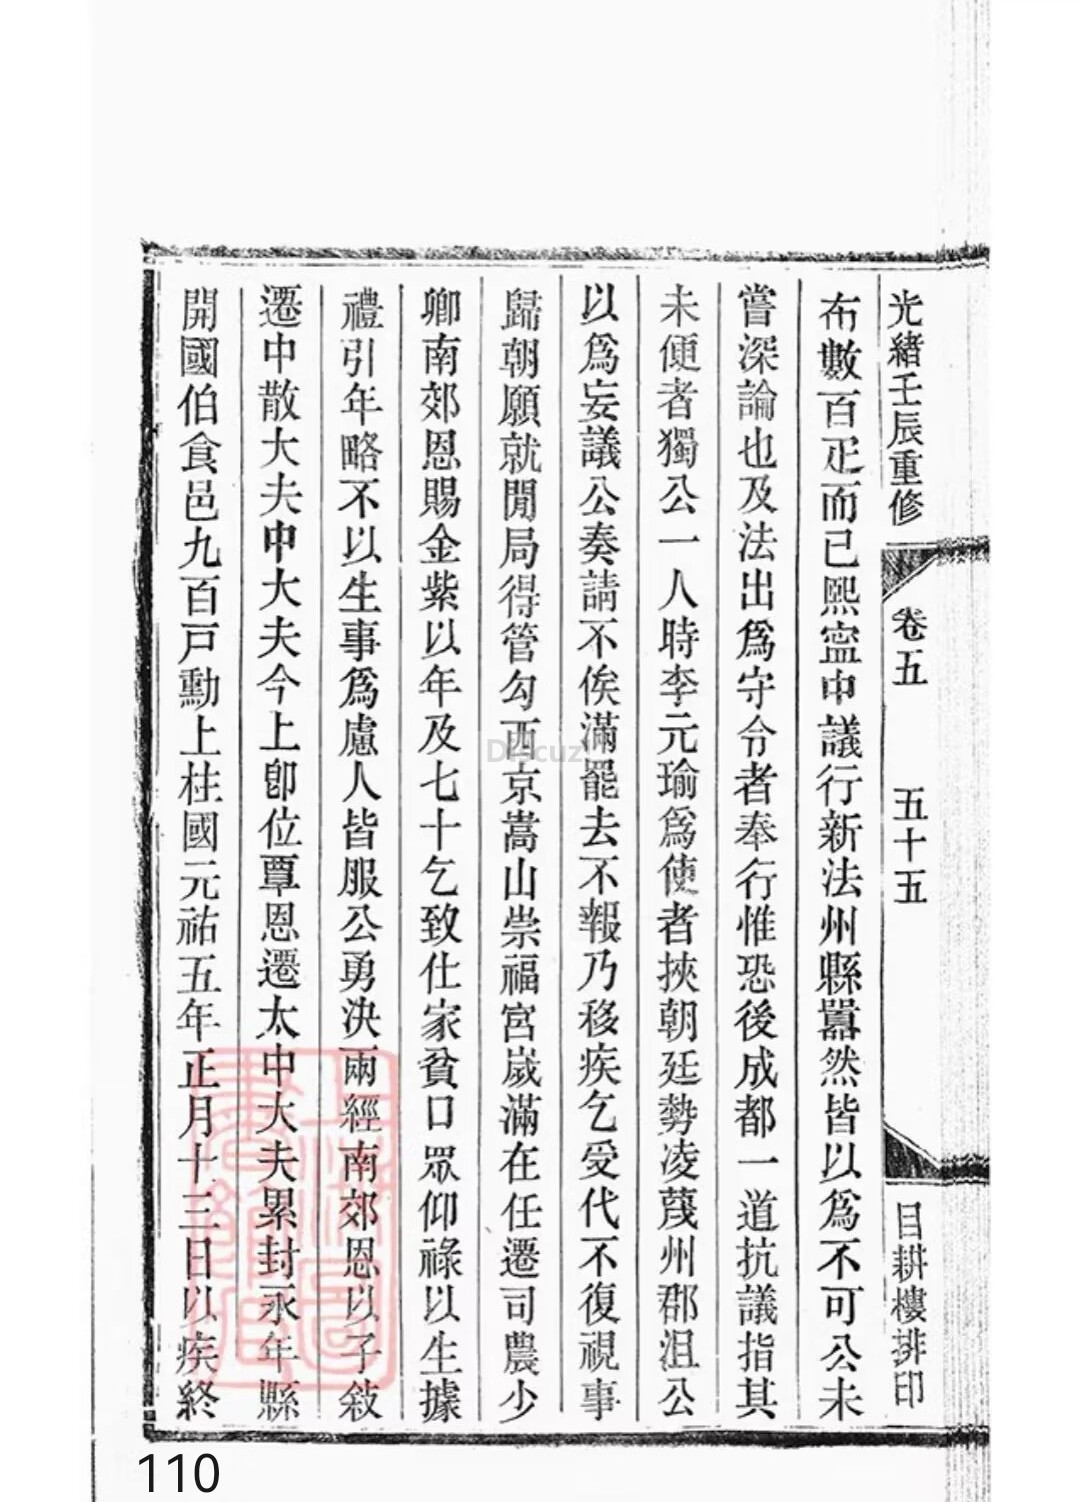 光緒壬辰重修 卷五 五十五 目耕樓排印
布數百疋而已熙寍中議行新法州縣嚚然皆以爲不可公未
嘗深論也及法出爲守令者奉行惟恐後成都一道抗議指其
未便者獨公一人時李元瑜爲使者挾朝廷勢凌蔑州郡沮公
以爲妄議公奏請不俟滿罷去不報乃移疾乞受代不復視事
歸朝願就閒局得管勾西京嵩山崇福宮嵗滿在任遷司農少
卿南郊恩賜金紫以年及七十乞致仕家貧口眾仰祿以生據
禮引年略不以生事爲慮人皆服公勇決兩經南郊恩以子敍
遷中散大夫中大夫今上卽位覃恩遷太中大夫累封永年縣
開國伯食邑九百戸勳上柱國元祐五年正月十三日以疾終
Discuz!
110